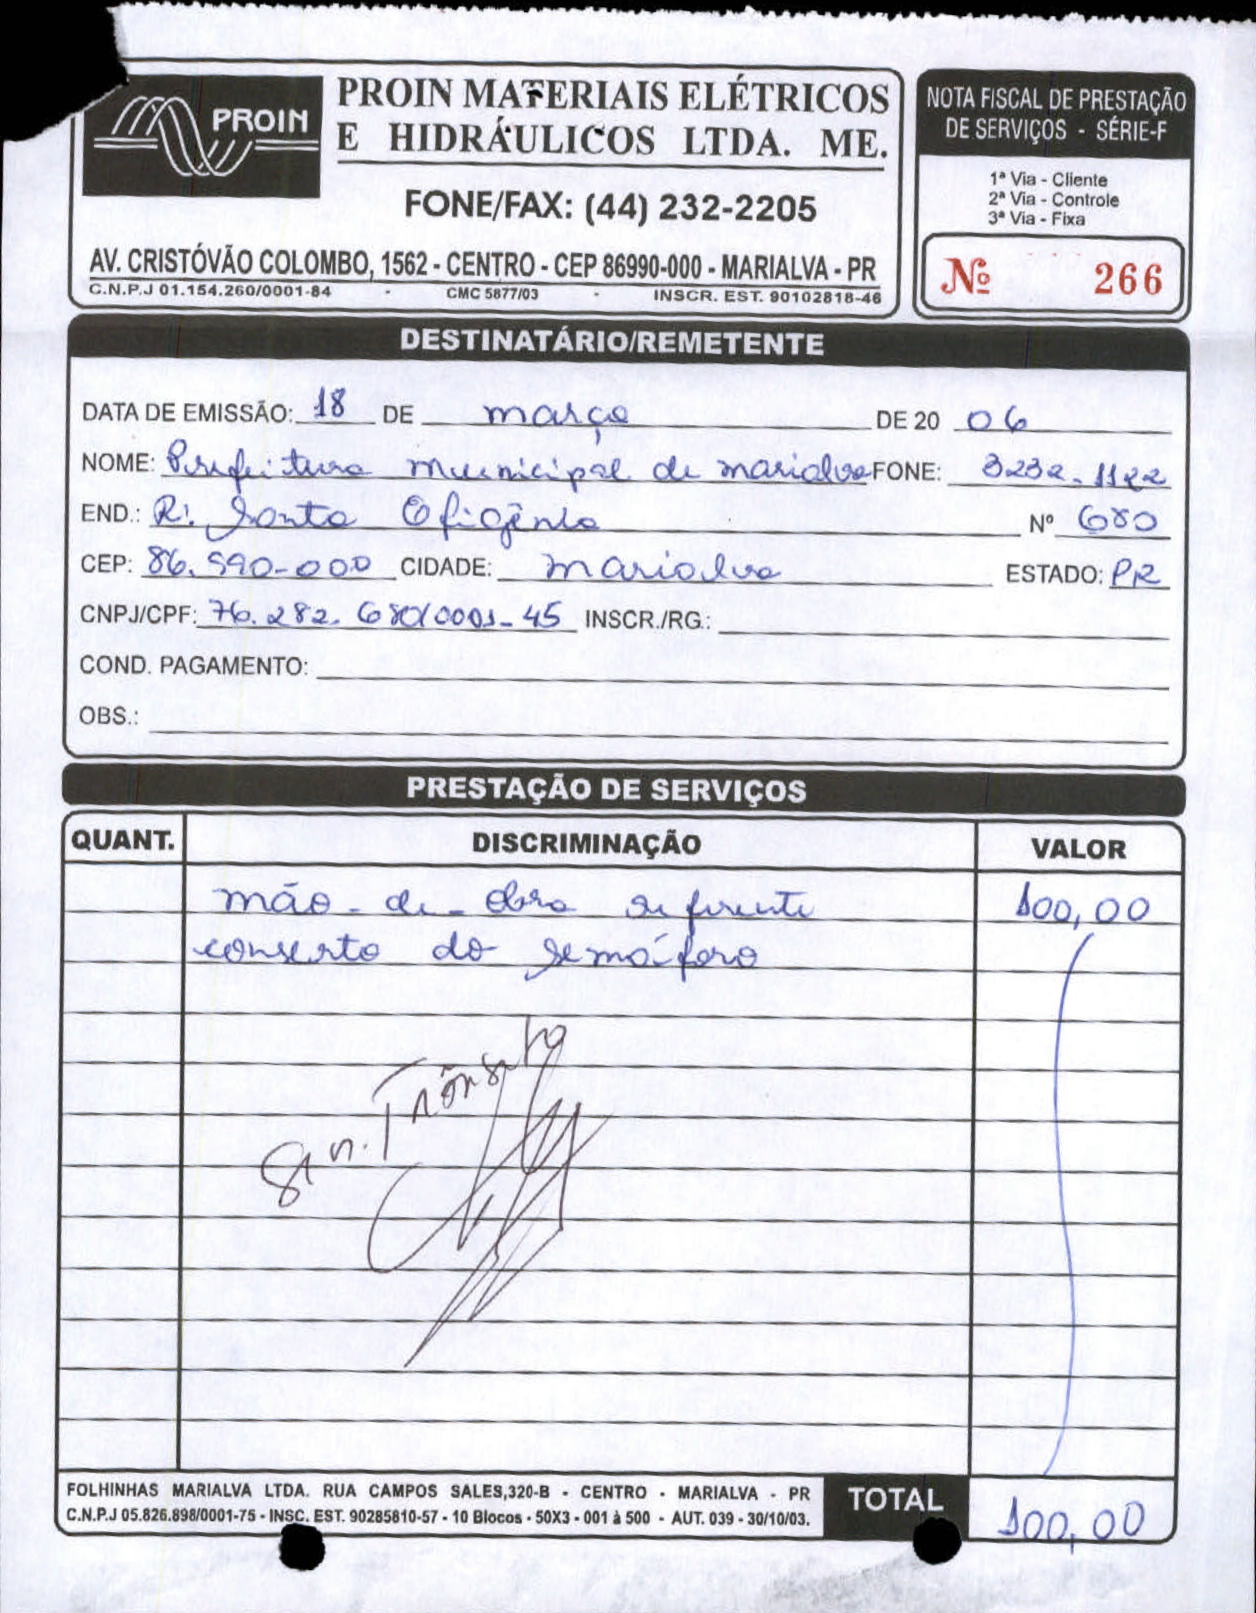 PROIN
PROIN MATERIAIS ELÉTRICOS
E HIDRÁULICOS LTDA. ME.
FONE/FAX: (44) 232-2205
AV. CRISTÓVÃO COLOMBO, 1562 - CENTRO - CEP 86990-000 - MARIALVA - PR
C.N.P.J 01.154.260/0001-84 - CMC 5877/03 - INSCR. EST. 90102818-46
NOTA FISCAL DE PRESTAÇÃO
DE SERVIÇOS - SÉRIE-F
1ª Via - Cliente
2ª Via - Controle
3ª Via - Fixa
Nº 266
DESTINATÁRIO/REMETENTE
DATA DE EMISSÃO: 18 DE março DE 20 06
NOME: Prefeitura municipal de marialva FONE: 3232-1122
END.: R: Santa Efigênia Nº 680
CEP: 86.990-000 CIDADE: marialva ESTADO: PR
CNPJ/CPF: 76.282.680/0001-45 INSCR./RG.:
COND. PAGAMENTO:
OBS.:
PRESTAÇÃO DE SERVIÇOS
QUANT. DISCRIMINAÇÃO VALOR
mão-de-obra referente 100,00
conserto do semáforo
Trânsito
FOLHINHAS MARIALVA LTDA. RUA CAMPOS SALES,320-B - CENTRO - MARIALVA - PR
C.N.P.J 05.826.898/0001-75 - INSC. EST. 90285810-57 - 10 Blocos - 50X3 - 001 à 500 - AUT. 039 - 30/10/03.
TOTAL 100,00